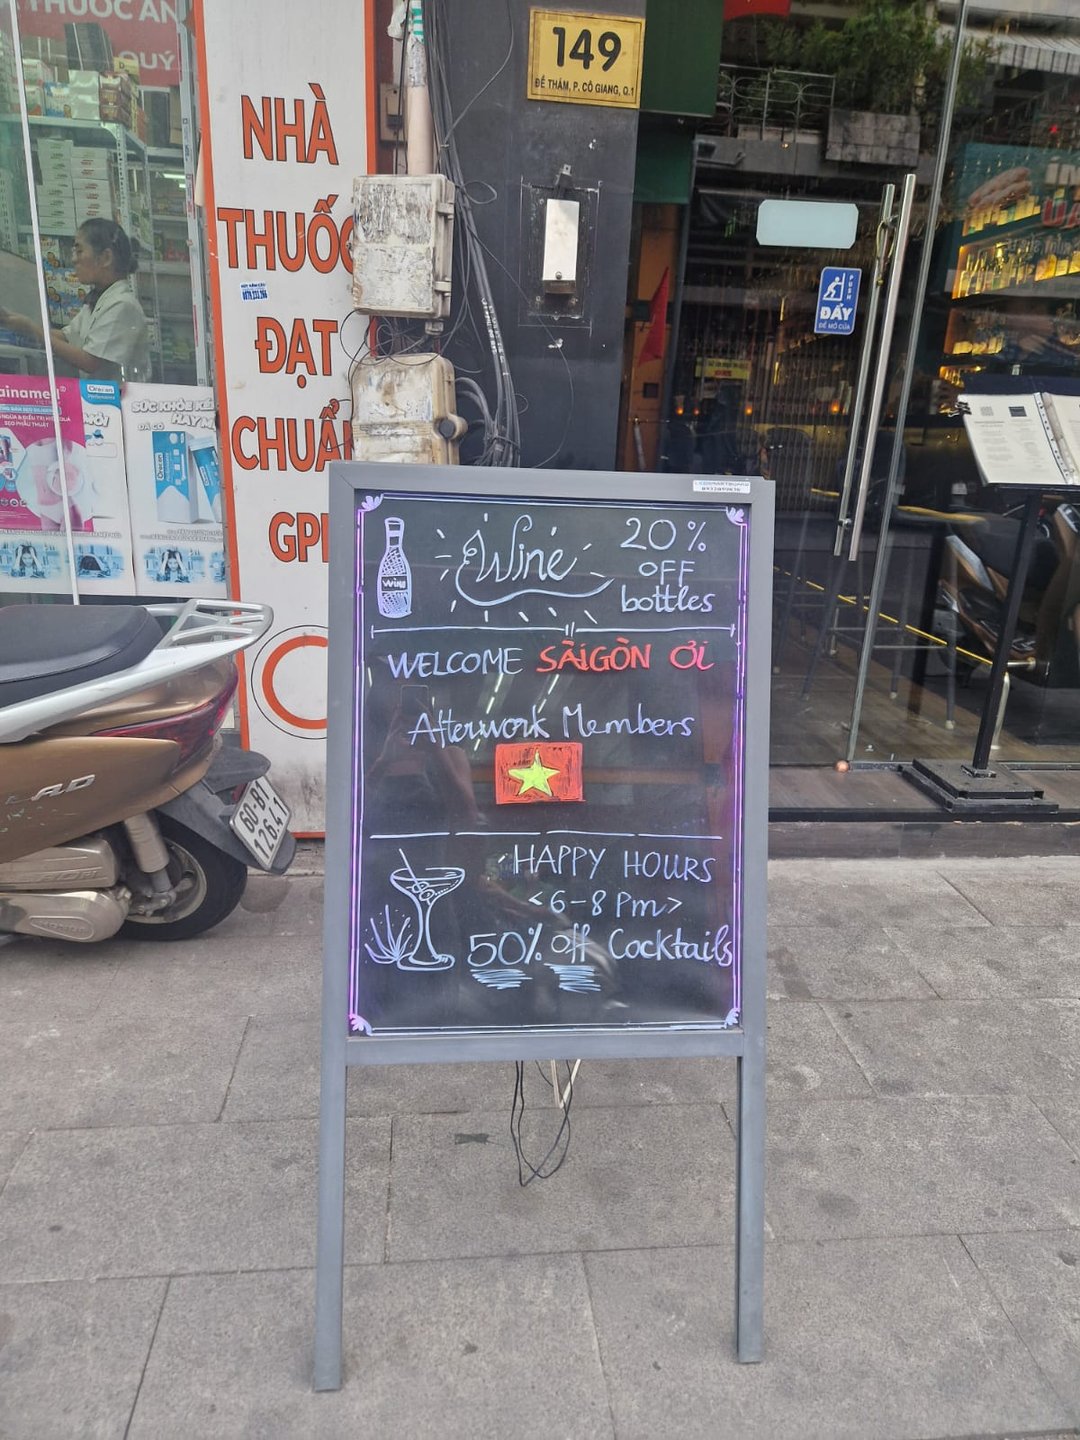 THUỐC AN
QUÝ
NHÀ
THUỐC
ĐẠT
CHUẨ
GP
149
ĐỀ THÁM, P. CÔ GIANG, Q.1
PUSH
ĐẨY
ĐỂ MỞ CỬA
SỨC KHỎE
ĐÃ CÓ
LEAD
60-B1
126.41
Wine
wine
20%
OFF
bottles
WELCOME SÀIGÒN ƠI
Afterwork Members
HAPPY HOURS
<6-8 Pm>
50% off Cocktails